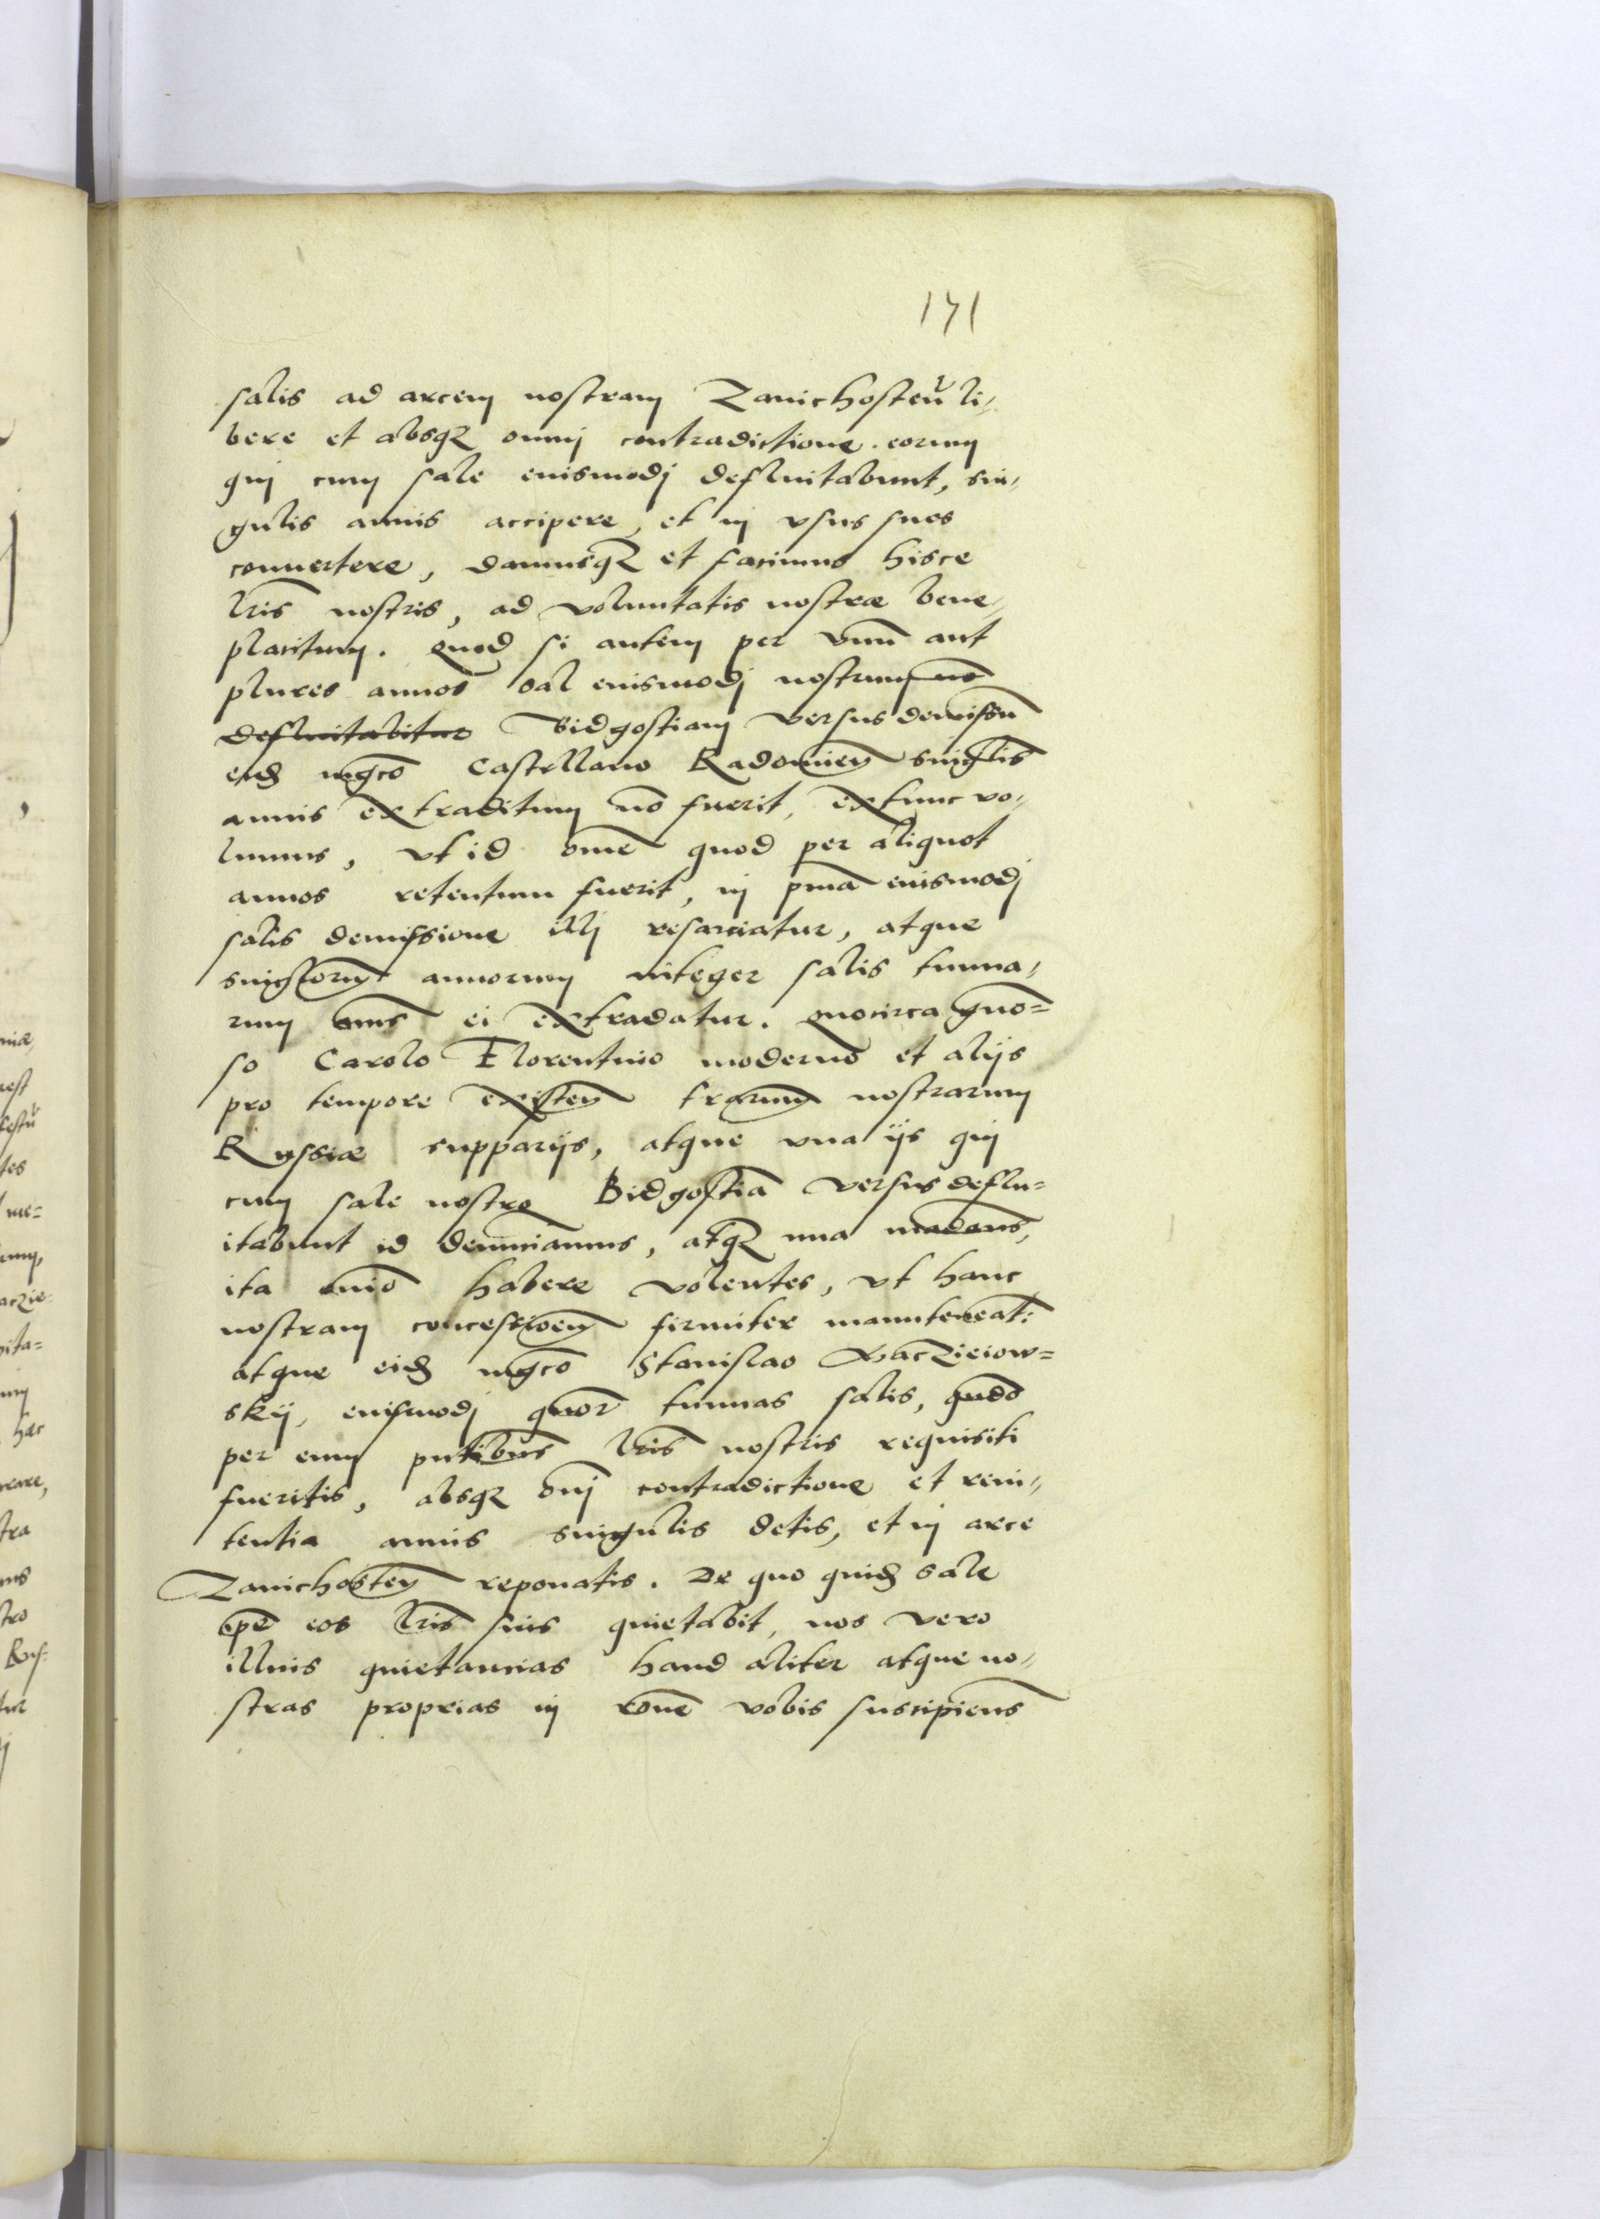 171
salis ad arcem nostram Zanichosteñ li,
bere et absqz omnj contradictione eorum
quj cum sale euismodj defluitabunt, sin,
gulis annis accipere, et in vsus suos
conuertere, damusqz et facimus hisce
lris nostris, ad voluntatis nostræ bene,
placitum. Quod si autem per vnũ aut
plures annos sal euismodj nostrum nõ
defluitabitur Bidgostiam versus demissũ
eidẽ mgco Castellano Radomieñ singlis
annis extraditum nõ fuerit, extunc vo,
lumus, vt id omẽ quod per aliquot
annos retentum fuerit, in pma euismodj
salis demissione illj resarciatur, atque
singlorum annorum integer salis tunna,
rum nũs ei extradatur. Quocirca gnõ=
so Carolo Florentino moderno et alijs
pro tempore existeñ trarum nostrarum
Russiæ supparijs, atque vna ijs quj
cum sale nostro Bidgostiã versus deflu=
itabunt id denunciamus, atqz una mãdams,
ita omïo habere volentes, vt hanc
nostram concessioem firmiter manuteneat:
atque eidẽ mgco Stanislao Maczieiow=
skij, euismodj quor tunnas salis, qndo
per eum pñtibus lris nostris requisiti
fueritis, absqz onj contradictione et reni,
tentia annis singulis detis, et in arce
Zanichosteñ reponatis. De quo quidẽ sale
ipẽ eos lris suis quietabit, nos vero
illius quietancias haud aliter atque no,
stras proprias in rone vobis suscipiems